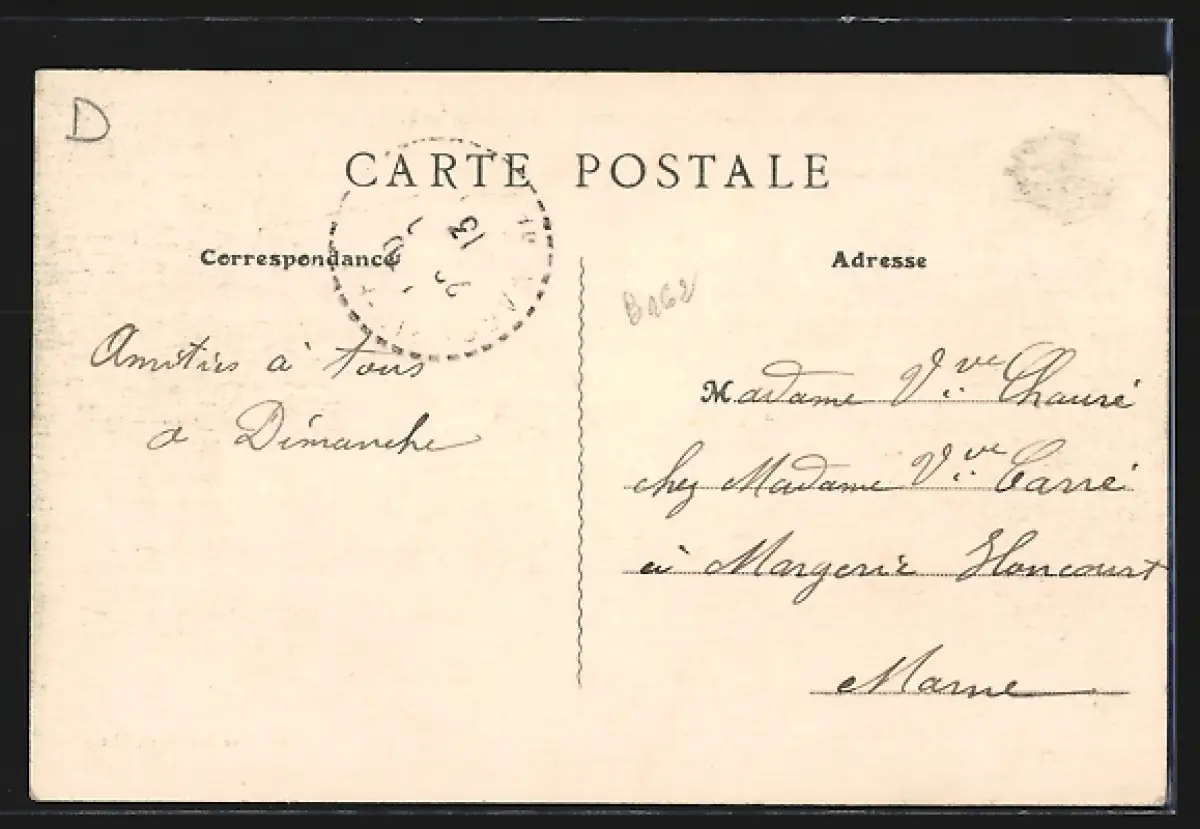 D
CARTE POSTALE
13
Correspondance
Adresse
Amitiés à tous
à Dimanche
Madame Vve Chauré
chez Madame Vve Carré
à Margerie Hancourt
Marne